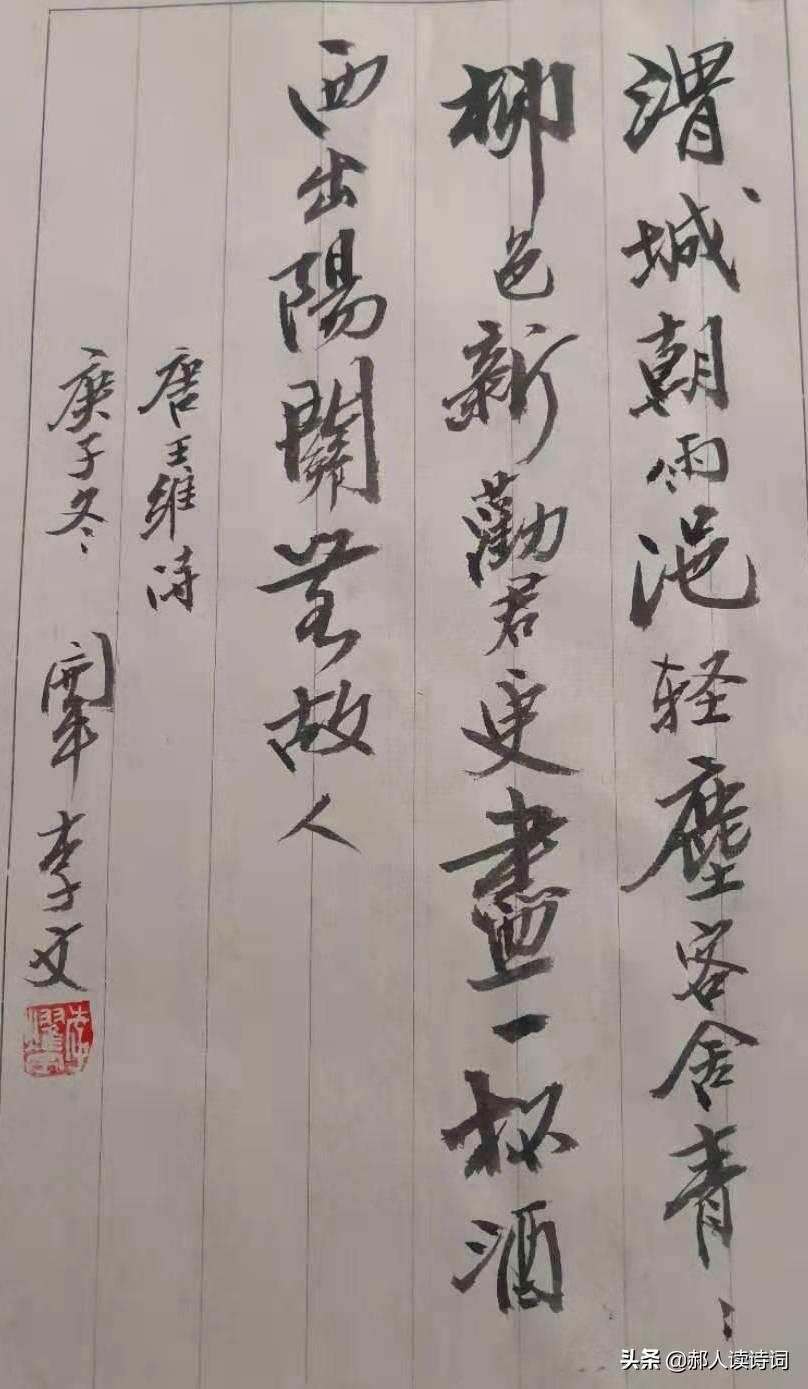 渭城朝雨浥轻塵客舍青:
柳色新勸君更盡一杯酒
西出陽關無故人
唐王維詩
庚子冬 李文
头条 @郝人读诗词